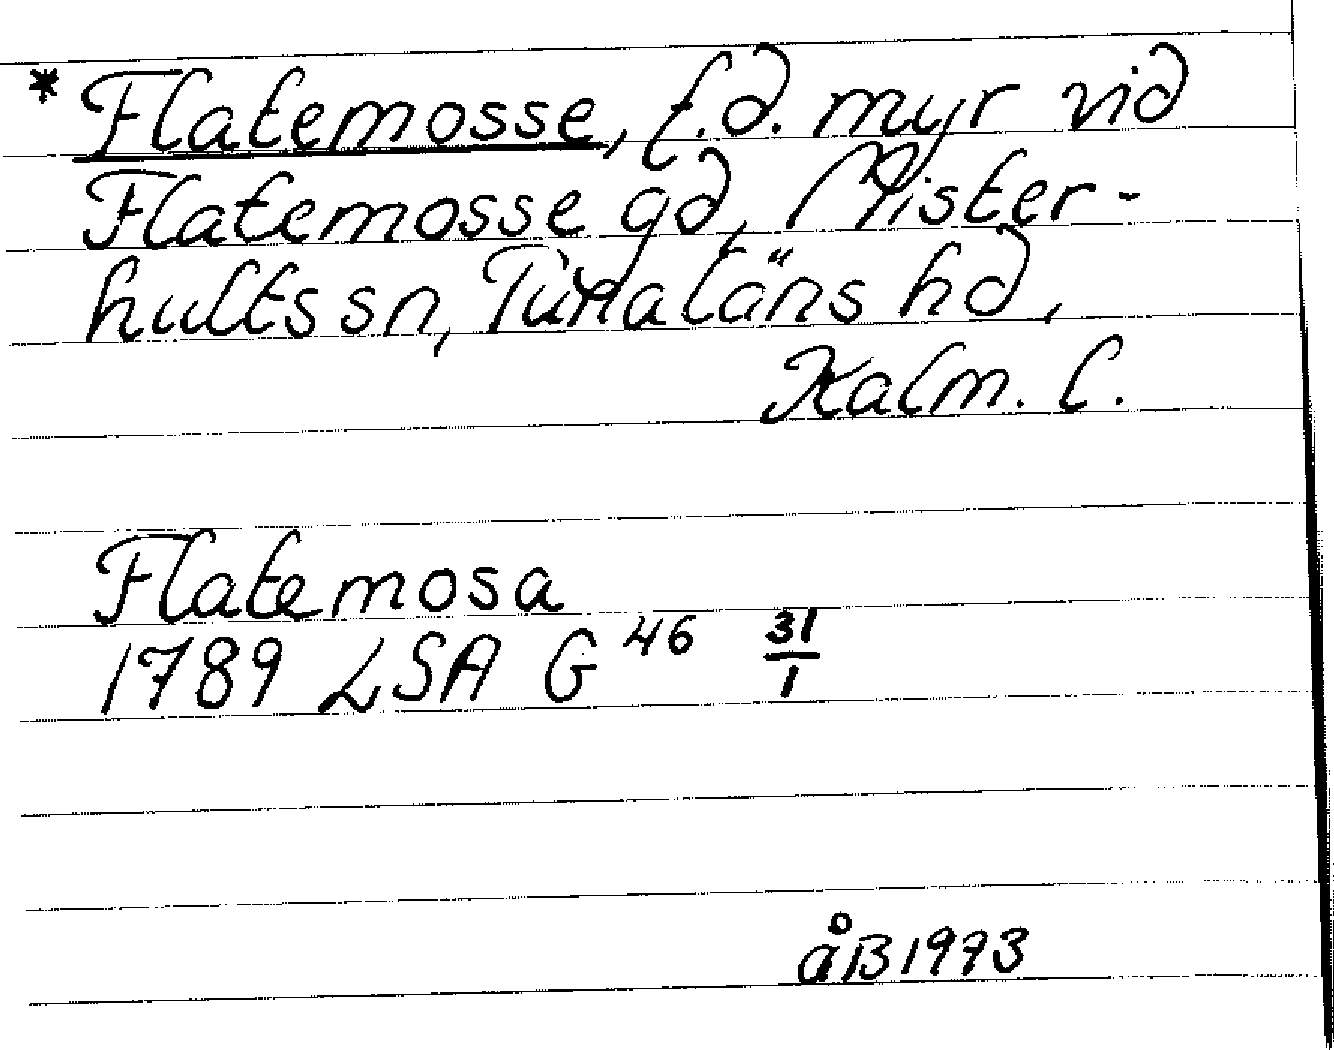 * Flatemosse, f.d. myr vid
Flatemosse gd, Mister-
hults sn, Tunaläns hd,
Kalm. l.
Flatemosa
1789 LSA G 46 31/1
åB 1973